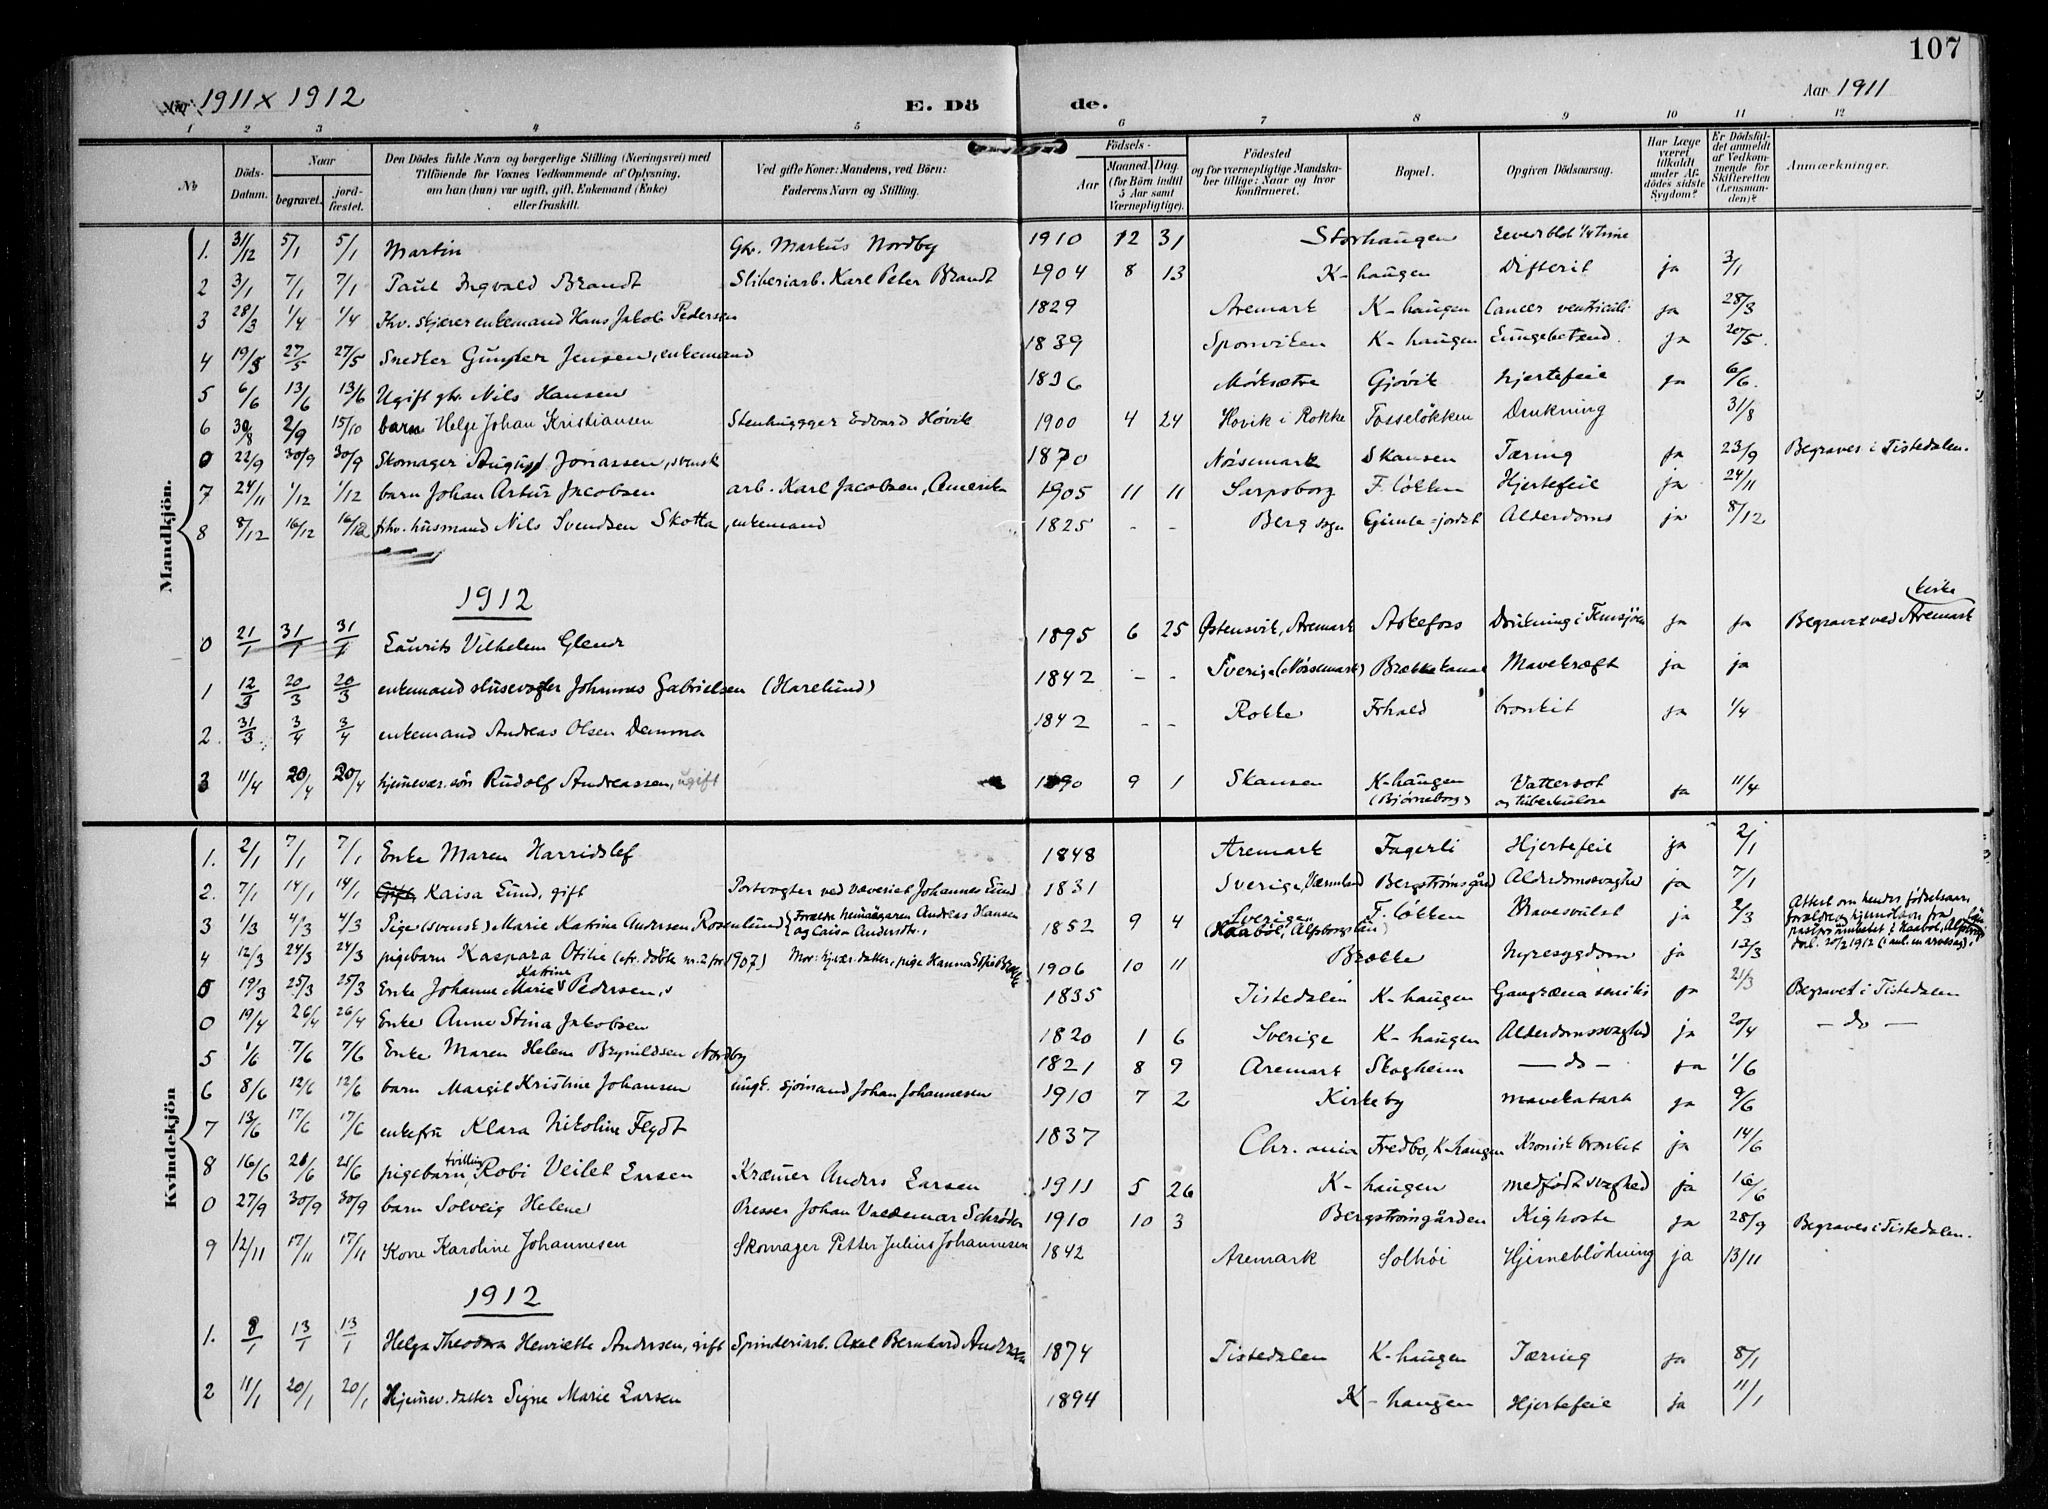 107
1911 x 1912 E. Dö de. Aar 1911
1 2 3 4 5 6 7 8 9 10 11 12
No Döds-Datum. Naar begravet. jord-fæstet. Den Dödes fulde Navn og borgerlige Stilling (Næringsvei) med Tilföiende for Voxnes Vedkommende af Oplysning, om han (hun) var ugift, gift, Enkemand (Enke) eller fraskilt. Ved gifte Koner: Mandens, ved Börn: Faderens Navn og Stilling. Födsels- Aar Maaned. Dag. (for Börn indtil 5 Aar samt Værnepligtige). Födested og for værnepligtige Mandskaber tillige: Naar og hvor konfirmeret. Bopæl. Opgiven Dödsaarsag. Har Læge været tilkaldt under Afdödes sidste Sygdom? Er Dödsfaldet anmeldt af Vedkommende for Skifteretten (Lensmanden)? Anmærkninger.
Mandkjön.
1. 31/12 5/1 5/1 Martin Gbr. Markus Nordby 1910 12 31 Storhaugen Levedblot 1/4 Time
2 3/1 7/1 7/1 Paul Ingvald Brandt Sliberiarb. Karl Peter Brandt 1904 8 13 K-haugen Difterit ja 3/1
3 28/3 1/4 1/4 Fhv. skjærer enkemand Hans Jakob Pedersen 1829 Aremark K-haugen Cancer ventriculi ja 28/3
4 19/5 27/5 27/5 Snedker Gunder Jensen, enkemand 1839 Sponviken K-haugen Lungebetænd. ja 20/5
5 6/6 13/6 13/6 Ugift gbr. Nils Hansen 1836 Mörksætre Gjövik hjertefeil ja 6/6
6 30/8 2/9 15/10 barn Helge Johan Kristiansen Stenhugger Edvard Hövik 1900 4 24 Hovik i Rokke Fosselökken Drukning 31/8
0 22/9 30/9 30/9 Skomager August Jonassen, svensk 1870 Nössemark Skansen Tæring ja 23/9 Begraves i Tistedalen.
7 24/11 1/12 1/12 barn Johan Artur Jacobsen arb. Karl Jacobsen, Amerika 1905 11 11 Sarpsborg F. lökken Hjertefeil ja 24/11
8 8/12 16/12 16/12 fhv. husmand Nils Svendsen Skotta, enkemand 1825 - - Berg sogn Gimle-jordet Alderdoms ja 8/12
1912
0 21/1 31/1 31/1 Laurits Vilhelm Glende 1895 6 25 Östensvik, Aremark Askefoss Drukning i Femsjöen ja ja Begravet ved Aremark kirke
1 12/3 20/3 20/3 enkemand slusevogter Johannes Gabrielsen (Harelund) 1842 - - Sverige (Nössemark) Brække kanal Mavekræft ja ja
2. 31/3 3/4 3/4 enkemand Andreas Olsen Demma 1842 - - Rokke Frhald bronkit ja 1/4
3 11/4 20/4 20/4 hjemmevær. sön Rudolf Andreassen, ugift 1890 9 1 Skansen K-haugen (Bjørneborg) Vattersot og tuberkulose ja 11/4
Kvindekjön
1. 2/1 7/1 7/1 Enke Maren Harridslef 1848 Aremark Fagerli Hjertefeil ja 2/1
2. 7/1 14/1 14/1 Gift Kaisa Lund, gift Portvogter ved væveriet Johannes Lund 1831 Sverige, Værmland Bergströmsgård Alderdomssvaghed ja 7/1
3 1/3 4/3 4/3 Pige (svensk) Marie Katrine Andersen Rosenlund (Forældre hemäägaren Andreas Hansen og Caisa Andersdtr.) 1852 9 4 Sverige (Kaaböl, Alfsborgslän) F. lökken Bravesvulst ja 2/3 Attest om hendes födselsaar, forældre og hjemstavn fra pastorsämbetet i Kaaböl, Alfsborgs län dat. 20/2 1912 (i anl. en arvesag).
4 12/3 24/3 24/3 pigebarn Kaspara Otilie (cfr. döbte nr. 2 for 1907) Mor: hjvær. datter, pige Hanna Sofie Brække 1906 10 11 Brække Nyresygdom ja 12/3
5 19/3 25/3 25/3 Enke Johanne Marie Katrine Pedersen, 1835 Tistedalen K-haugen Gangræna senilis ja 21/3 Begravet i Tistedalen
0 19/4 26/4 26/4 Enke Anne Stina Jakobsen 1820 1 6 Sverige K-haugen Alderdomssvaghed ja 20/4 - do -
5 1/6 7/6 7/6 Enke Maren Helene Brynildsen Nordby 1821 8 9 Aremark Skogheim - do - ja 1/6
6 8/6 12/6 12/6 barn Margit Kristine Johansen ungk. sjömand Johan Johannesen 1910 7 2 Kirkeby mavekatarr ja 9/6
7 13/6 17/6 17/6 enkefru Klara Nikoline Feydt 1837 Chr.ania Fredbo, K-haugen Kronisk bronkit ja 14/6
8 16/6 21/6 21/6 pigebarn, tvilling Robi Veilet Larsen Kræmer Anders Larsen 1911 5 26 K-haugen medfödt svaghed ja 16/6
0 27/9 30/9 30/9 barn Solveig Helene Presser Johan Valdemar Schröder 1910 10 3 Bergstrømsgården Kighoste ja 28/9 Begraves i Tistedalen.
9 12/11 17/11 17/11 Kone Karoline Johannesen Skomager Petter Julius Johannesen 1842 Aremark Solhöi Hjerneblödning ja 13/11
1912
1. 8/1 13/1 13/1 Helga Theodora Henriette Andersen, gift Spinderiarb. Axel Bernhard Andersen 1874 Tistedalen K-haugen Tæring ja 8/1
2 11/1 20/1 20/1 Hjemmev. datter Signe Marie Larsen 1894 K-haugen Hjertefeil ja 11/1